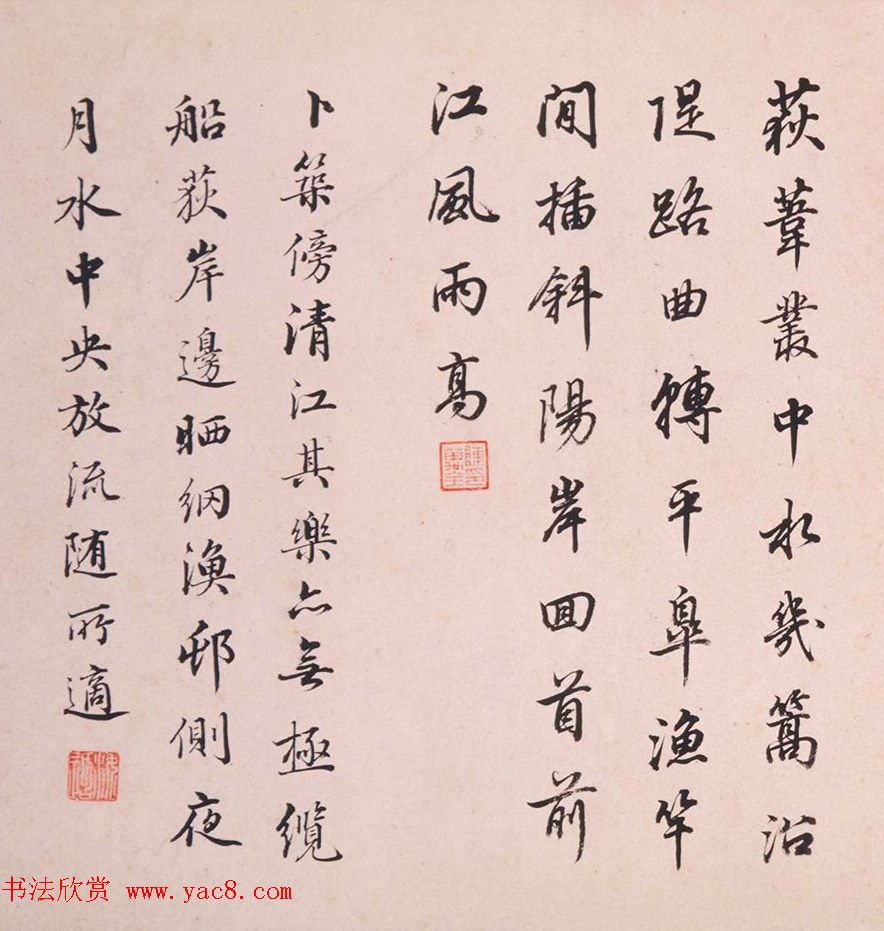 萩葦叢中水幾篙沿
隄路曲轉平皋漁竿
閒插斜陽岸回首前
江風雨高
卜築傍清江其樂亦無極纜
船荻岸邊晒網漁邨側夜
月水中央放流随所適
书法欣赏 www.yac8.com